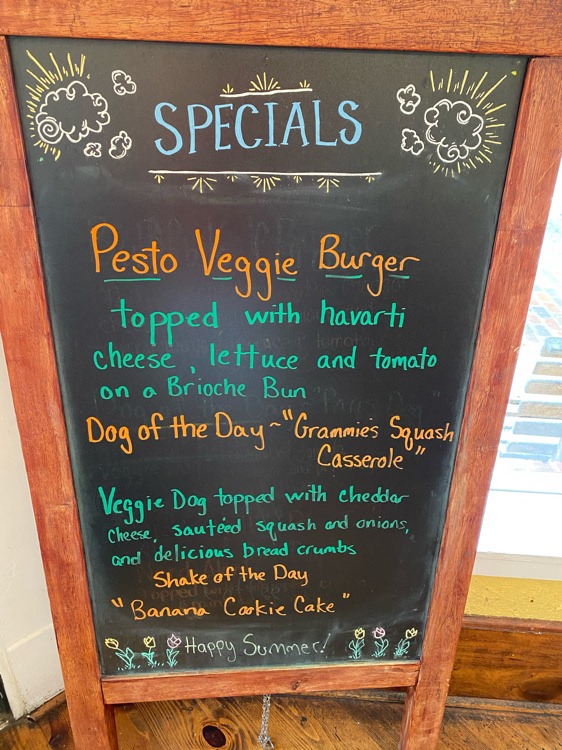 SPECIALS
Pesto Veggie Burger
topped with havarti
cheese, lettuce and tomato
on a Brioche Bun
Dog of the Day ~ "Grammie's Squash
Casserole"
Veggie Dog topped with cheddar
cheese, sautéed squash and onions,
and delicious bread crumbs
Shake of the Day
"Banana Cookie Cake"
Happy Summer!